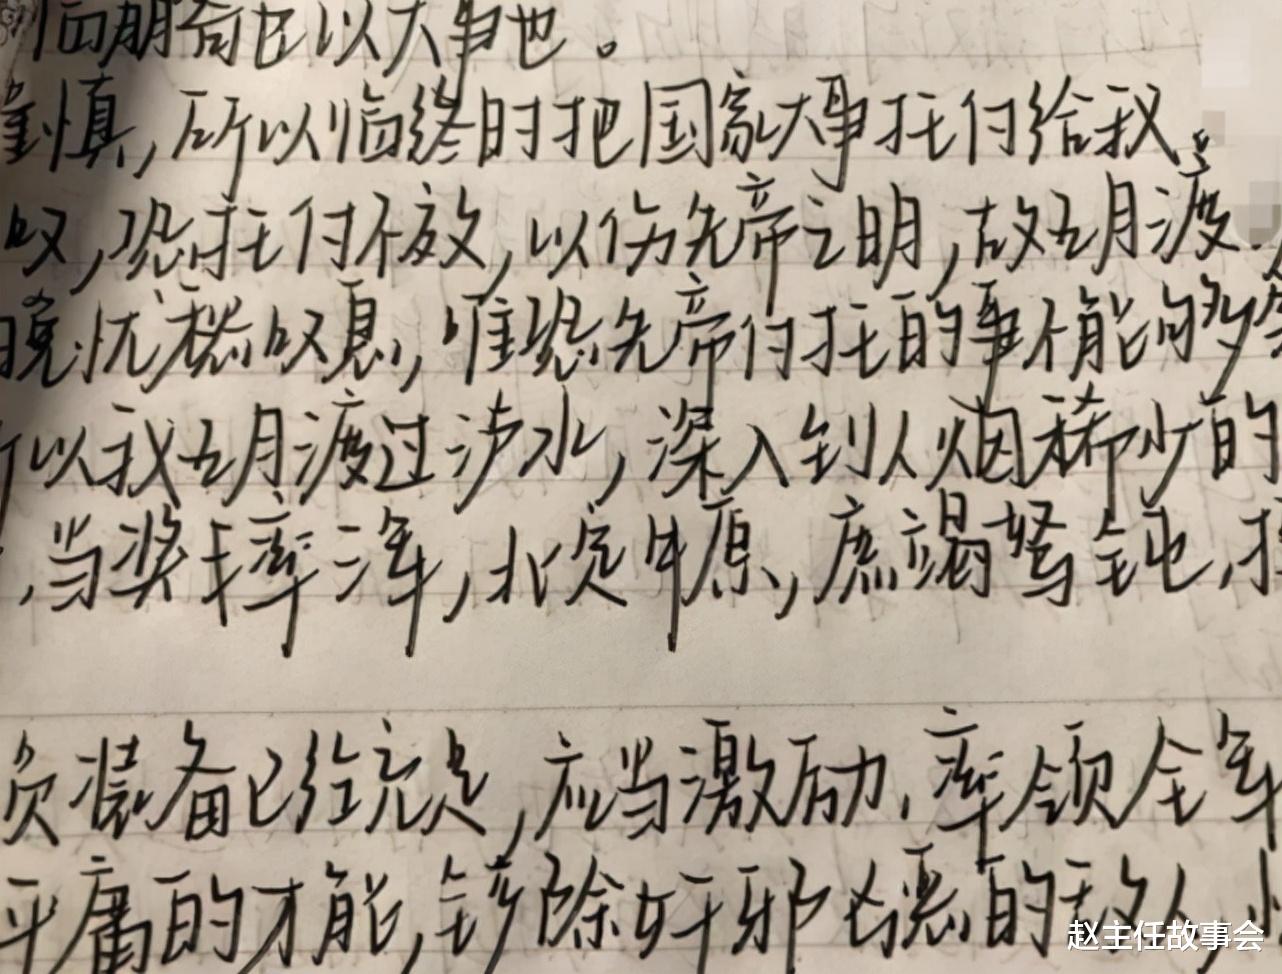 临崩寄臣以大事也。
谨慎,所以临终时把国家大事托付给我。
叹,恐托付不效,以伤先帝之明,故五月渡
晚忧愁叹息,唯恐先帝付托的事不能够
所以我五月渡过泸水,深入到人烟稀少的
,当奖率三军,北定中原,庶竭驽钝,
员装备已经充足,应当激励、率领全军
平庸的才能,铲除奸邪凶恶的敌人,
赵主任故事会